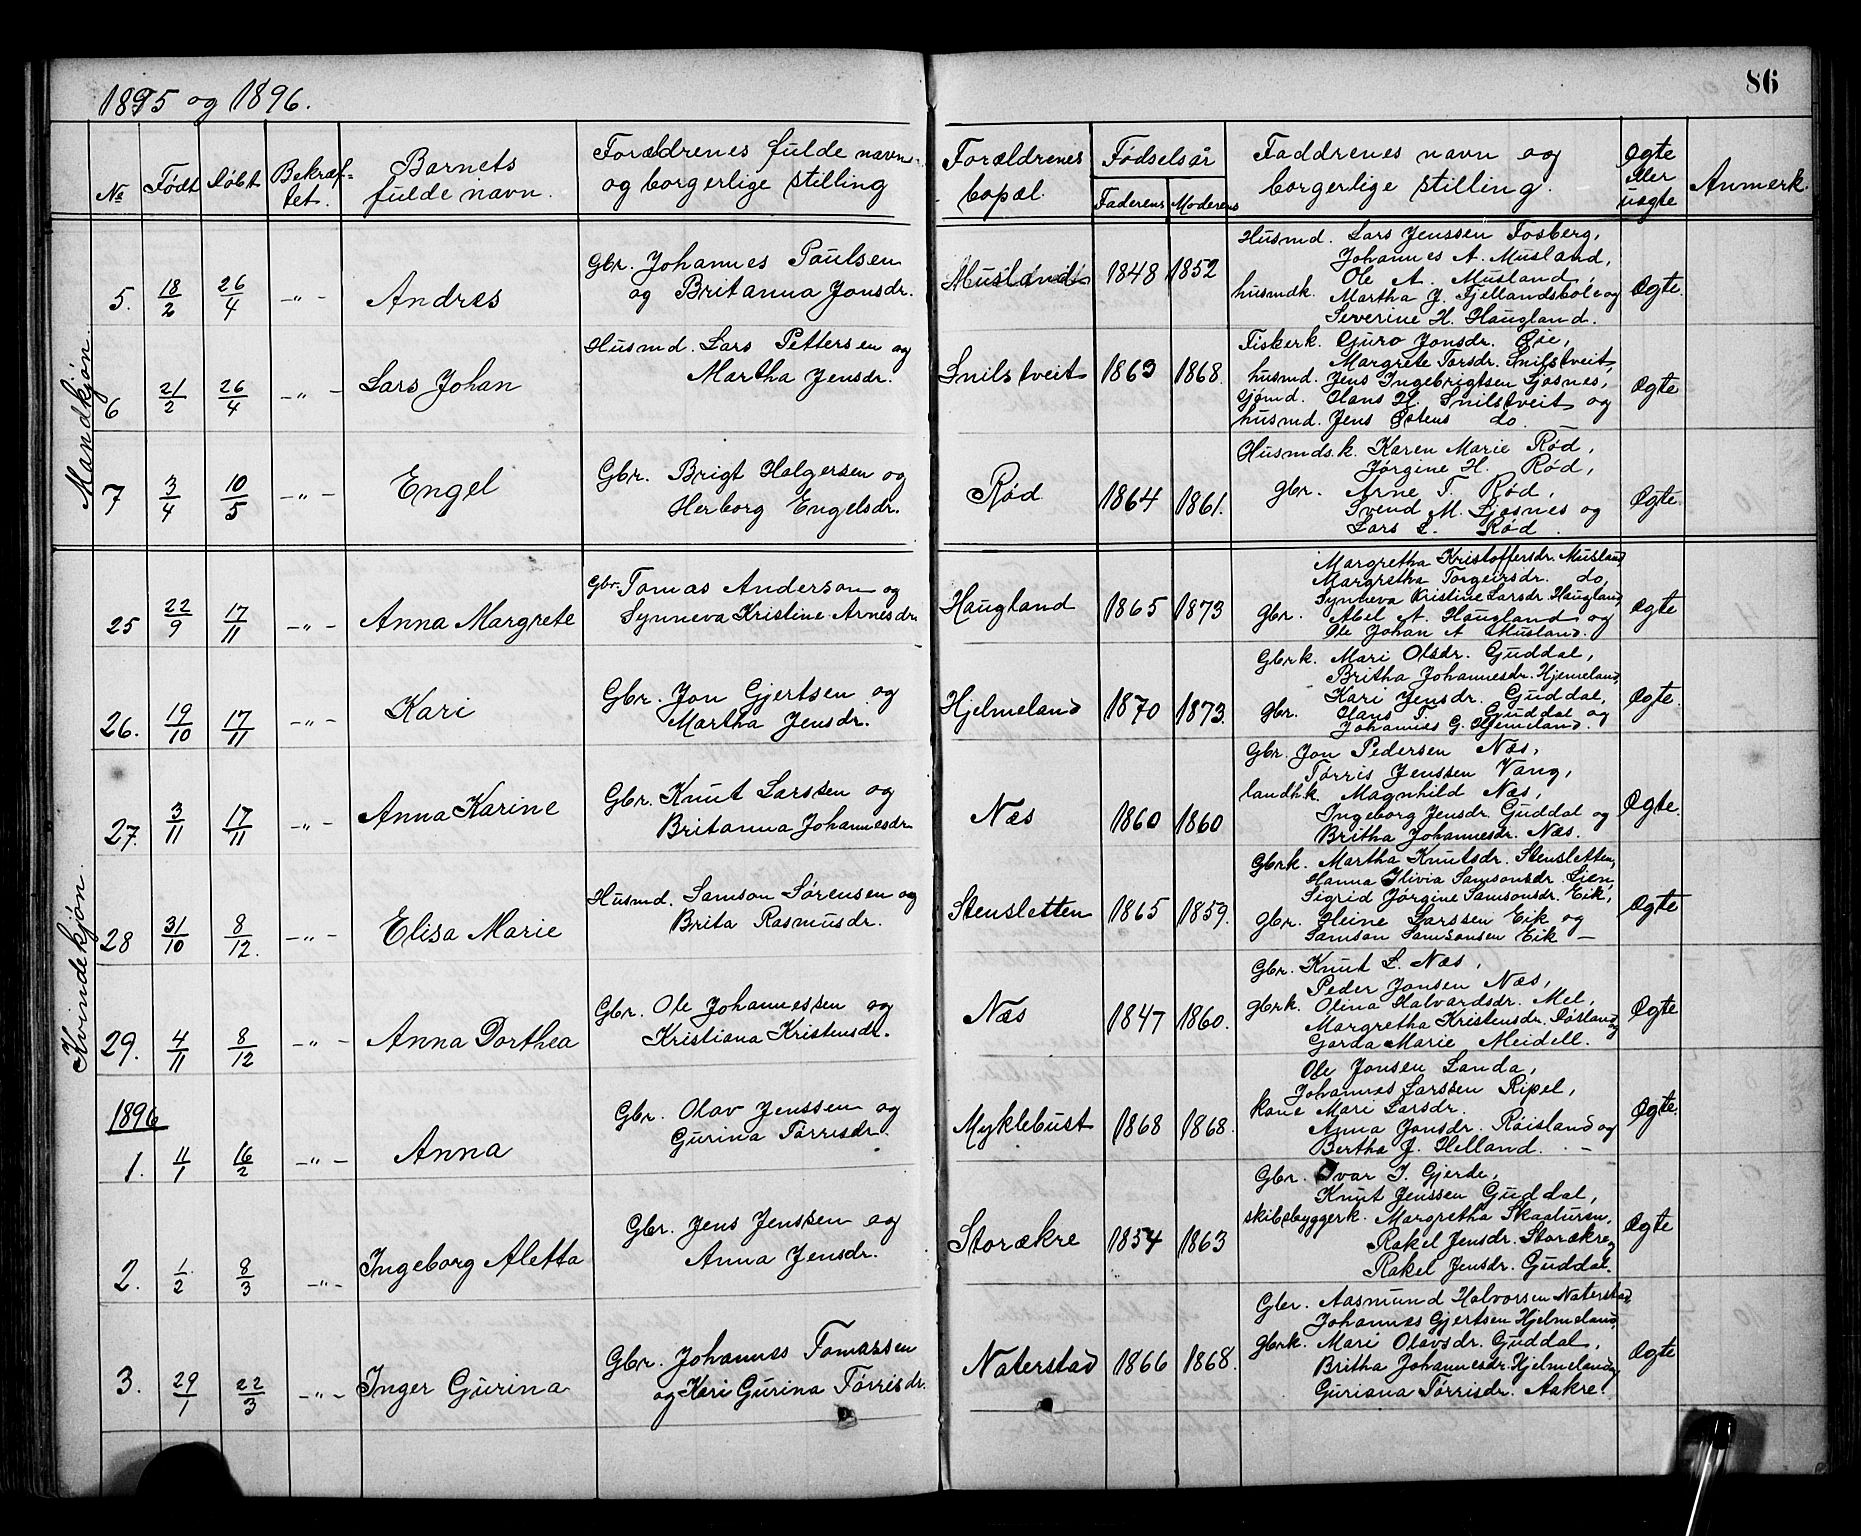 86
1895 og 1896.
№ Født Døbt Bekræf-tet. Barnets fulde navn. Forældrenes fulde navn og borgerlige stilling Forældrenes bopæl. Fødselsår Faderens Moderens Faddrenes navn og borgerlige stilling. Ægte eller uægte Anmerk.
Mandkjøn.
5. 18/2 26/4 -„- Andres
Gbr. Johannes Paulsen
og Britanna Jonsdr.
Musland 1848 1852
Husmd. Lars Jenssen Fosberg,
Johannes A. Musland,
Ole A. Musland,
husmdk. Martha J. Fjellandsbole og
Severine H. Haugland.
Ægte.
6 21/2 26/4 -„- Lars Johan
Husmd. Lars Pettersen og
Martha Jensdr.
Snilstveit 1863 1868.
Fiskerk. Guro Jonsdr. Øie,
Margrete Torsdr. Snilstveit,
husmd. Jens Ingebrigtsen Sjosnes,
Hans H. Snilstveit og
husmd. Jens Østens do.
Ægte
7 3/4 10/5 -„- Engel
Gbr. Brigt Holgersen og
Herborg Engelsdr.
Rød 1864 1861.
Husmds.k. Karen Marie Rød,
Jørgine H. Rød,
gbr. Arne T. Rød,
Svend M. Sjosnes og
Lars L. Rød.
Ægte.
Kvindekjøn.
25 22/9 17/11 -„- Anna Margrete
Gbr. Tomas Anderson og
Synneva Kristine Arnesdr.
Haugland 1865 1873
Margretha Kristoffersdr. Musland
Margretha Torgeirsdr. do,
Synneva Kristine Larsdr. Haugland,
Gbr. Abel A. Haugland og
Ole Johan A Musland.
Ægte
26. 19/10 17/11 -„- Kari
Gbr. Jon Gjertsen og
Martha Jensdr.
Hjelmeland 1870 1873.
Gbrk. Mari Olsdr. Guddal,
Britha Johannesdr. Hjemeland,
Kari Jensdr. Guddal,
gbr. Hans T. Guddal og
Johannes G. Hjemeland.
Ægte.
27. 3/11 17/11 -„- Anna Karine
Gbr. Knut Larssen og
Britanna Johannesdr
Næs 1860 1860
Gbr. Jon Pedersen Næs,
Tørris Jenssen Vang,
landh.k. Magnhild Næs,
Ingeborg Jensdr. Guddal og
Britha Johannesdr. Næs.
Ægte.
28 31/10 8/12. -„- Elisa Marie
Husmd. Samson Sørensen og
Brita Rasmusdr.
Stensletten 1865 1859.
Gbrk. Martha Knutsdr. Stensletten,
Hanna Ilivia Samsonsdr. Lien,
Sigrid Jørgine Samsonsdr. Eik,
Gbr. Heine Larssen Eik og
Samson Samsonsen Eik –
Ægte
29. 4/11 8/12 -„- Anna Dorthea
Gbr. Ole Johannessen og
Kristiana Kristensdr.
Næs 1847 1860.
Gbr. Knut L. Næs,
Peder Jonsen Næs,
gbrk. Olina Halvardsdr. Mel,
Margretha Kristensdr. og
Garda Marie Meidell.
Ægte
1896
1. 11/1 16/2 -„- Anna
Gbr. Olav Jenssen og
Gurina Tørrisdr.
Myklebust 1868 1868.
Ole Jonsen Landa,
Johannes Larssen Ripel,
kone Mari Larsdr.
Anna Jonsdr. Røisland og
Bertha J. Helland. –
Ægte.
2. 1/2 8/3 -„- Ingeborg Aletta
Gbr. Jens Jenssen og
Anna Jensdr.
Storækre 1854 1863
Gbr. Ivar I. Gjerde,
Knut Jenssen Guddal,
skibsbyggerk. Margretha Skaaturen,
Rakel Jensdr. Storækre og
Rakel Jensdr. Guddal.
Ægte
3. 29/1 22/3 -„- Inger Gurina
Gbr. Johannes Tomassen
og Kari Gurina Tørrisdr.
Naterstad 1866 1868.
Gbr. Aasmund Halvorsen Naterstad
Johannes Gjertsen Hjelmeland,
Gbrk. Mari Olavsdr. Guddal,
Britha Johannesdr. Hjelmeland og
Guriana Tørrisdr. Aakre.
Ægte